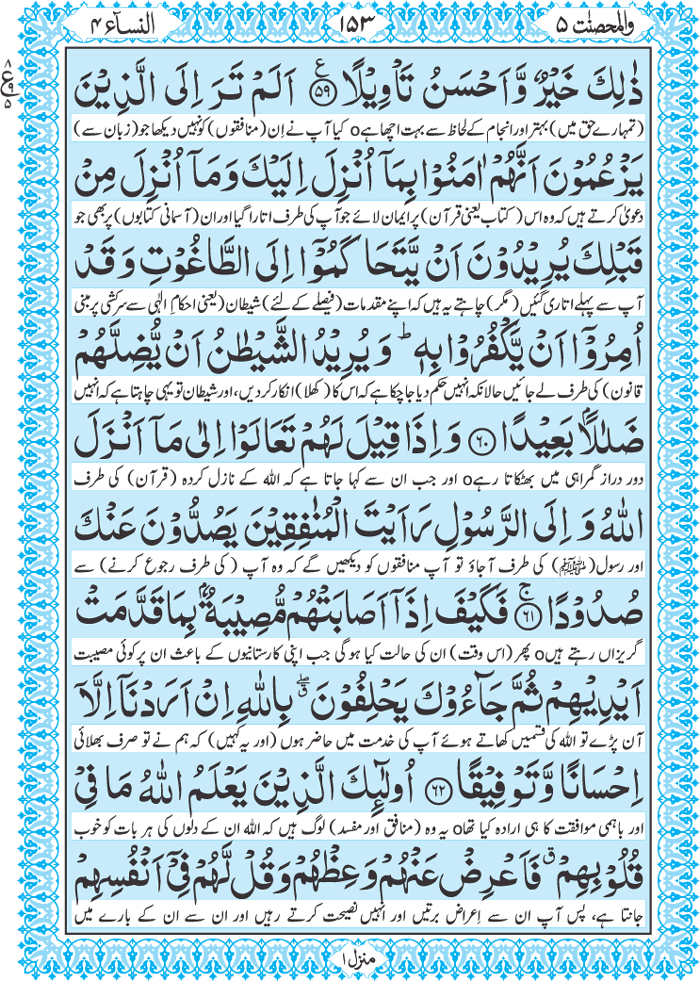 النسآء ۴ ۱۵۳ والمحصنٰت ۵
ذٰلِكَ خَيْرٌ وَّاَحْسَنُ تَاْوِيْلًا ﴿۵۹﴾ ع اَلَمْ تَرَ اِلَى الَّذِيْنَ
(تمہارے حق میں) بہتر اور انجام کے لحاظ سے بہت اچھا ہےo کیا آپ نے اِن (منافقوں) کو نہیں دیکھا جو (زبان سے)
يَزْعُمُوْنَ اَنَّهُمْ اٰمَنُوْا بِمَاۤ اُنْزِلَ اِلَيْكَ وَمَاۤ اُنْزِلَ مِنْ
دعویٰ کرتے ہیں کہ وہ اس (کتاب یعنی قرآن) پر ایمان لائے جو آپ کی طرف اتارا گیا اور ان (آسمانی کتابوں) پر بھی جو
قَبْلِكَ يُرِيْدُوْنَ اَنْ يَّتَحَاكَمُوْۤا اِلَى الطَّاغُوْتِ وَقَدْ
آپ سے پہلے اتاری گئیں (مگر) چاہتے یہ ہیں کہ اپنے مقدمات (فیصلے کے لئے) شیطان (یعنی احکامِ الٰہی سے سرکشی پر مبنی
اُمِرُوْۤا اَنْ يَّكْفُرُوْا بِهٖ ؕ وَيُرِيْدُ الشَّيْطٰنُ اَنْ يُّضِلَّهُمْ
قانون) کی طرف لے جائیں حالانکہ انہیں حکم دیا جا چکا ہے کہ اس کا (کھلا) انکار کر دیں، اور شیطان تو یہی چاہتا ہے کہ انہیں
ضَلٰلًاۢ بَعِيْدًا ﴿۶۰﴾ وَاِذَا قِيْلَ لَهُمْ تَعَالَوْا اِلٰى مَاۤ اَنْزَلَ
دور دراز گمراہی میں بھٹکاتا رہےo اور جب ان سے کہا جاتا ہے کہ اللہ کے نازل کردہ (قرآن) کی طرف
اللّٰهُ وَاِلَى الرَّسُوْلِ رَاَيْتَ الْمُنٰفِقِيْنَ يَصُدُّوْنَ عَنْكَ
اور رسول (ﷺ) کی طرف آجاؤ تو آپ منافقوں کو دیکھیں گے کہ وہ آپ (کی طرف رجوع کرنے) سے
صُدُوْدًا ﴿۶۱﴾ ۚ فَكَيْفَ اِذَاۤ اَصَابَتْهُمْ مُّصِيْبَةٌۢ بِمَا قَدَّمَتْ
گریزاں رہتے ہیںo پھر (اس وقت) ان کی حالت کیا ہوگی جب اپنی کارستانیوں کے باعث ان پر کوئی مصیبت
اَيْدِيْهِمْ ثُمَّ جَآءُوْكَ يَحْلِفُوْنَ ۖق بِاللّٰهِ اِنْ اَرَدْنَاۤ اِلَّاۤ
آن پڑے تو اللہ کی قسمیں کھاتے ہوئے آپ کی خدمت میں حاضر ہوں (اور یہ کہیں) کہ ہم نے تو صرف بھلائی
اِحْسَانًا وَّتَوْفِيْقًا ﴿۶۲﴾ اُولٰٓئِكَ الَّذِيْنَ يَعْلَمُ اللّٰهُ مَا فِيْ
اور باہمی موافقت کا ہی ارادہ کیا تھاo یہ وہ (منافق اور مفسد) لوگ ہیں کہ اللہ ان کے دلوں کی ہر بات کو خوب
قُلُوْبِهِمْ ق فَاَعْرِضْ عَنْهُمْ وَعِظْهُمْ وَقُلْ لَّهُمْ فِيْۤ اَنْفُسِهِمْ
جانتا ہے، پس آپ ان سے اِعراض برتیں اور انہیں نصیحت کرتے رہیں اور ان سے ان کے بارے میں
منزل ۱